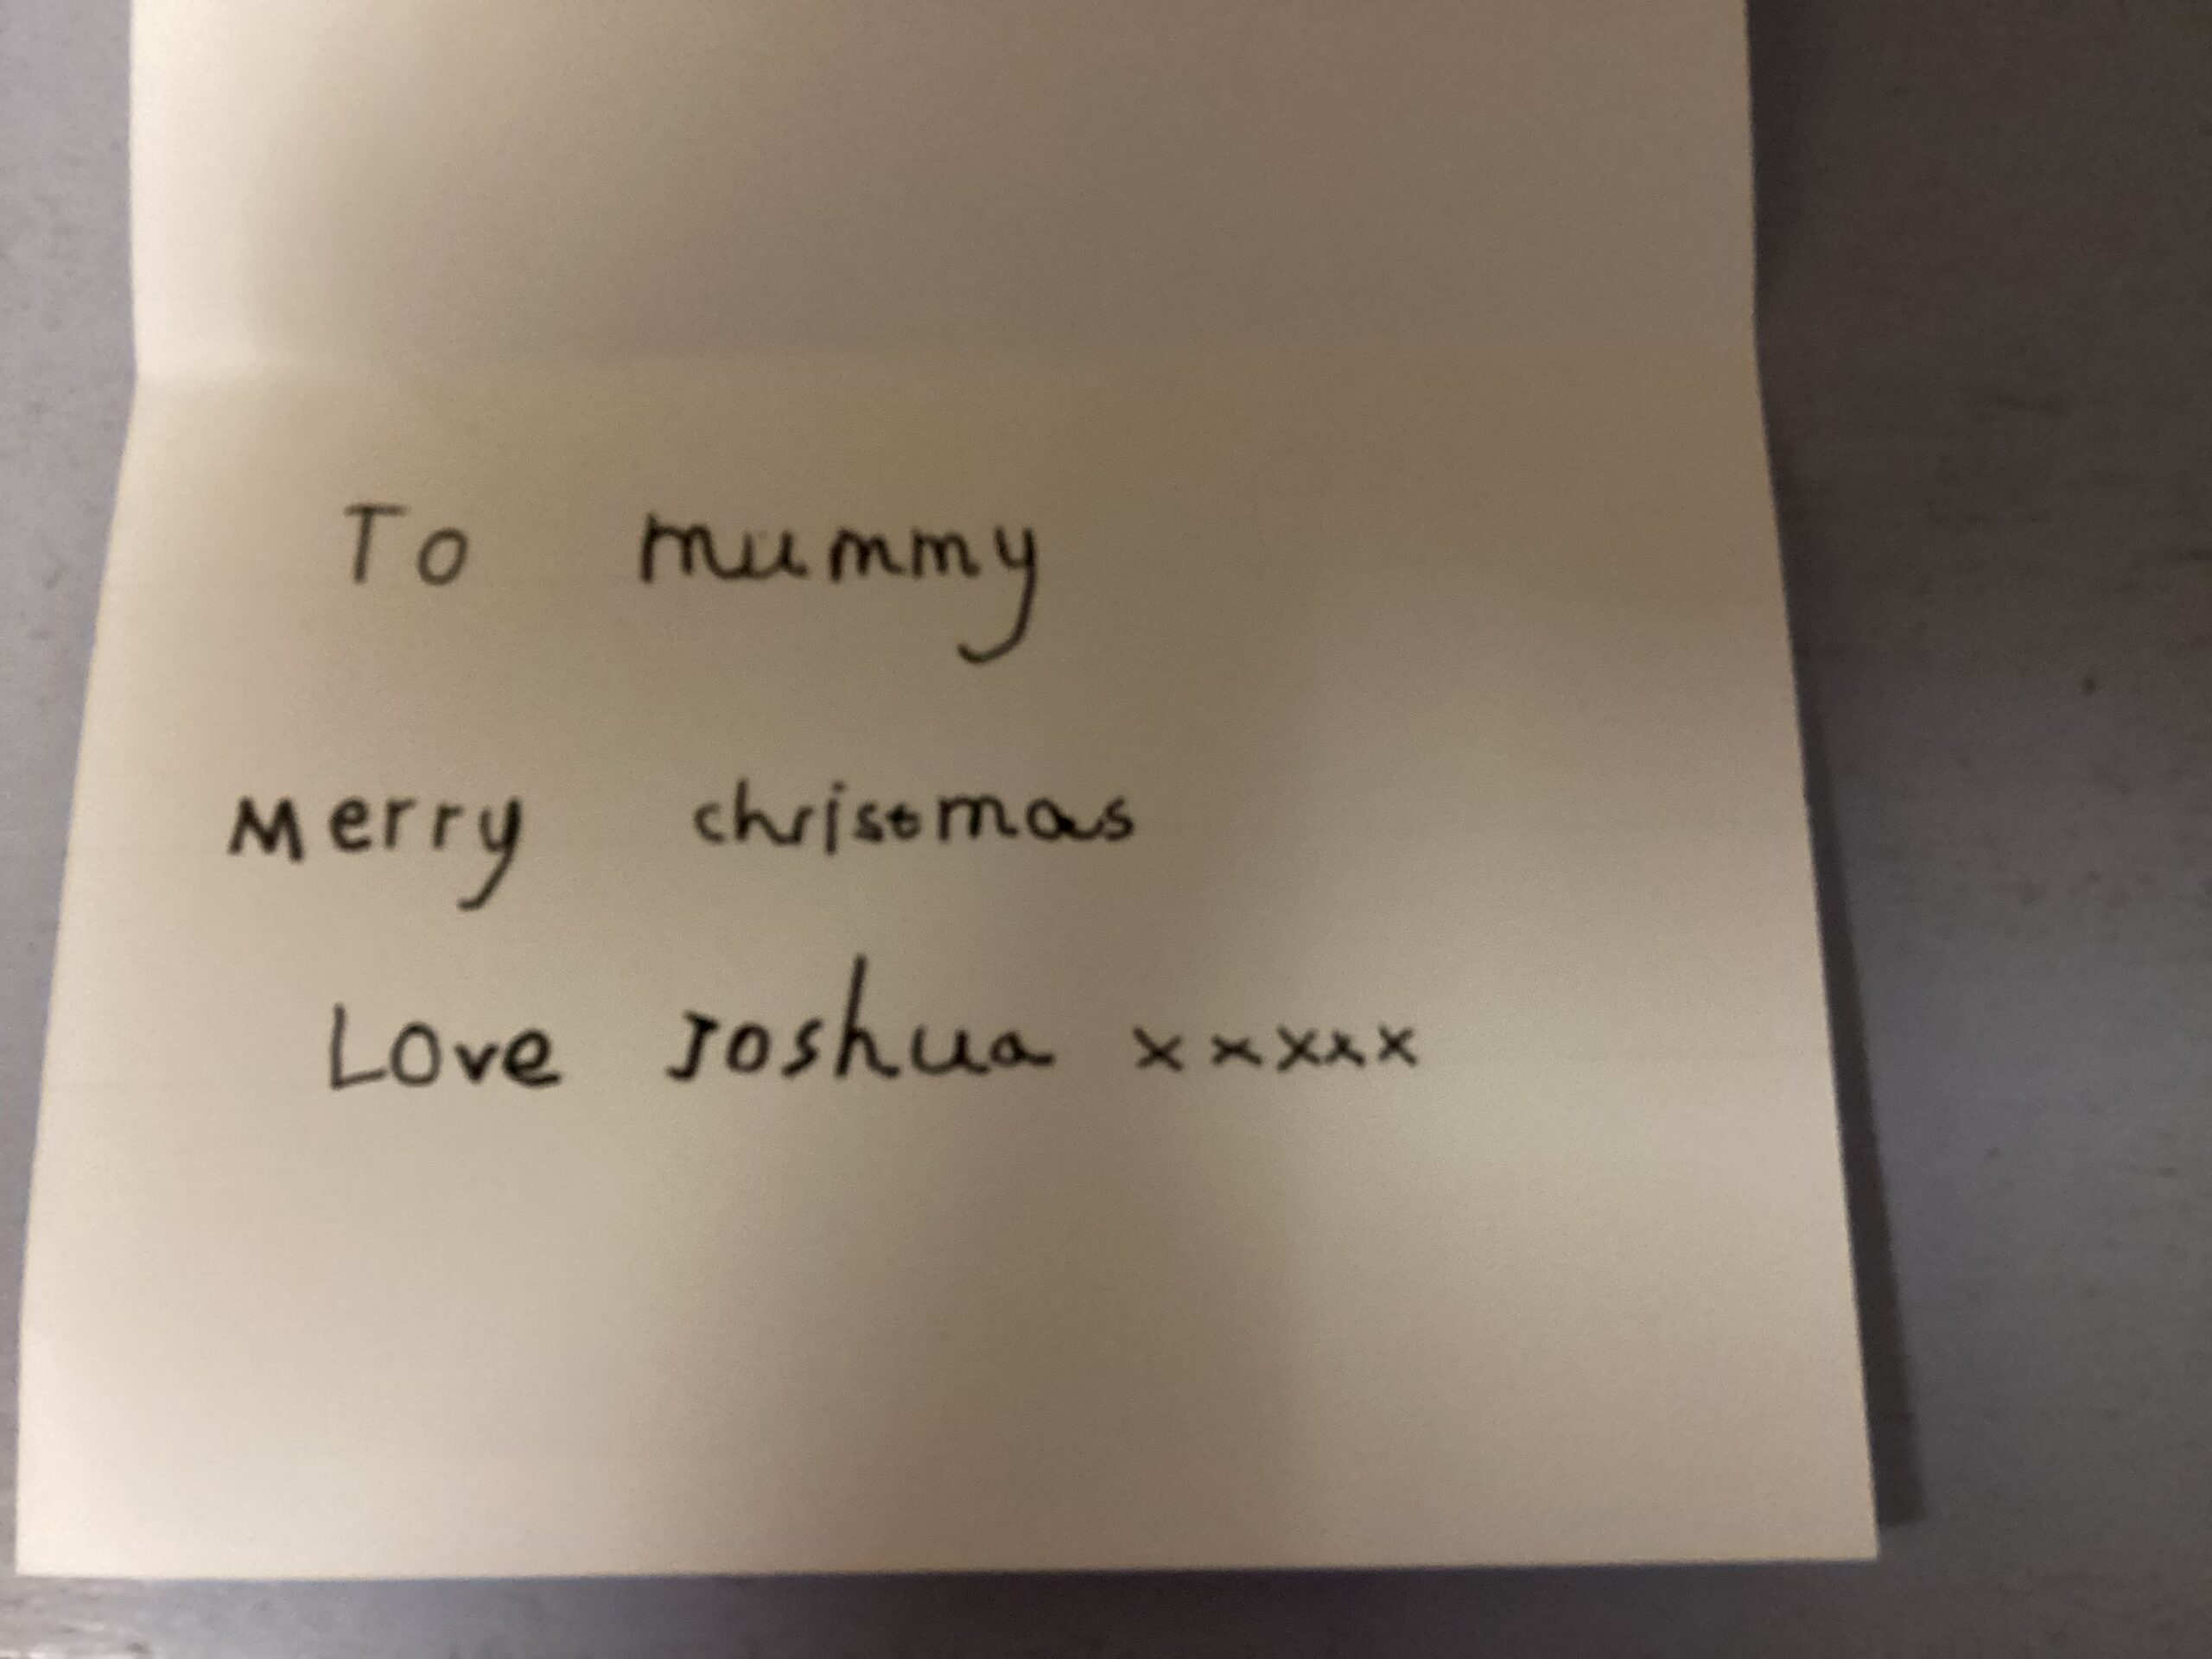 To mummy
Merry christmas
Love Joshua xxxxx